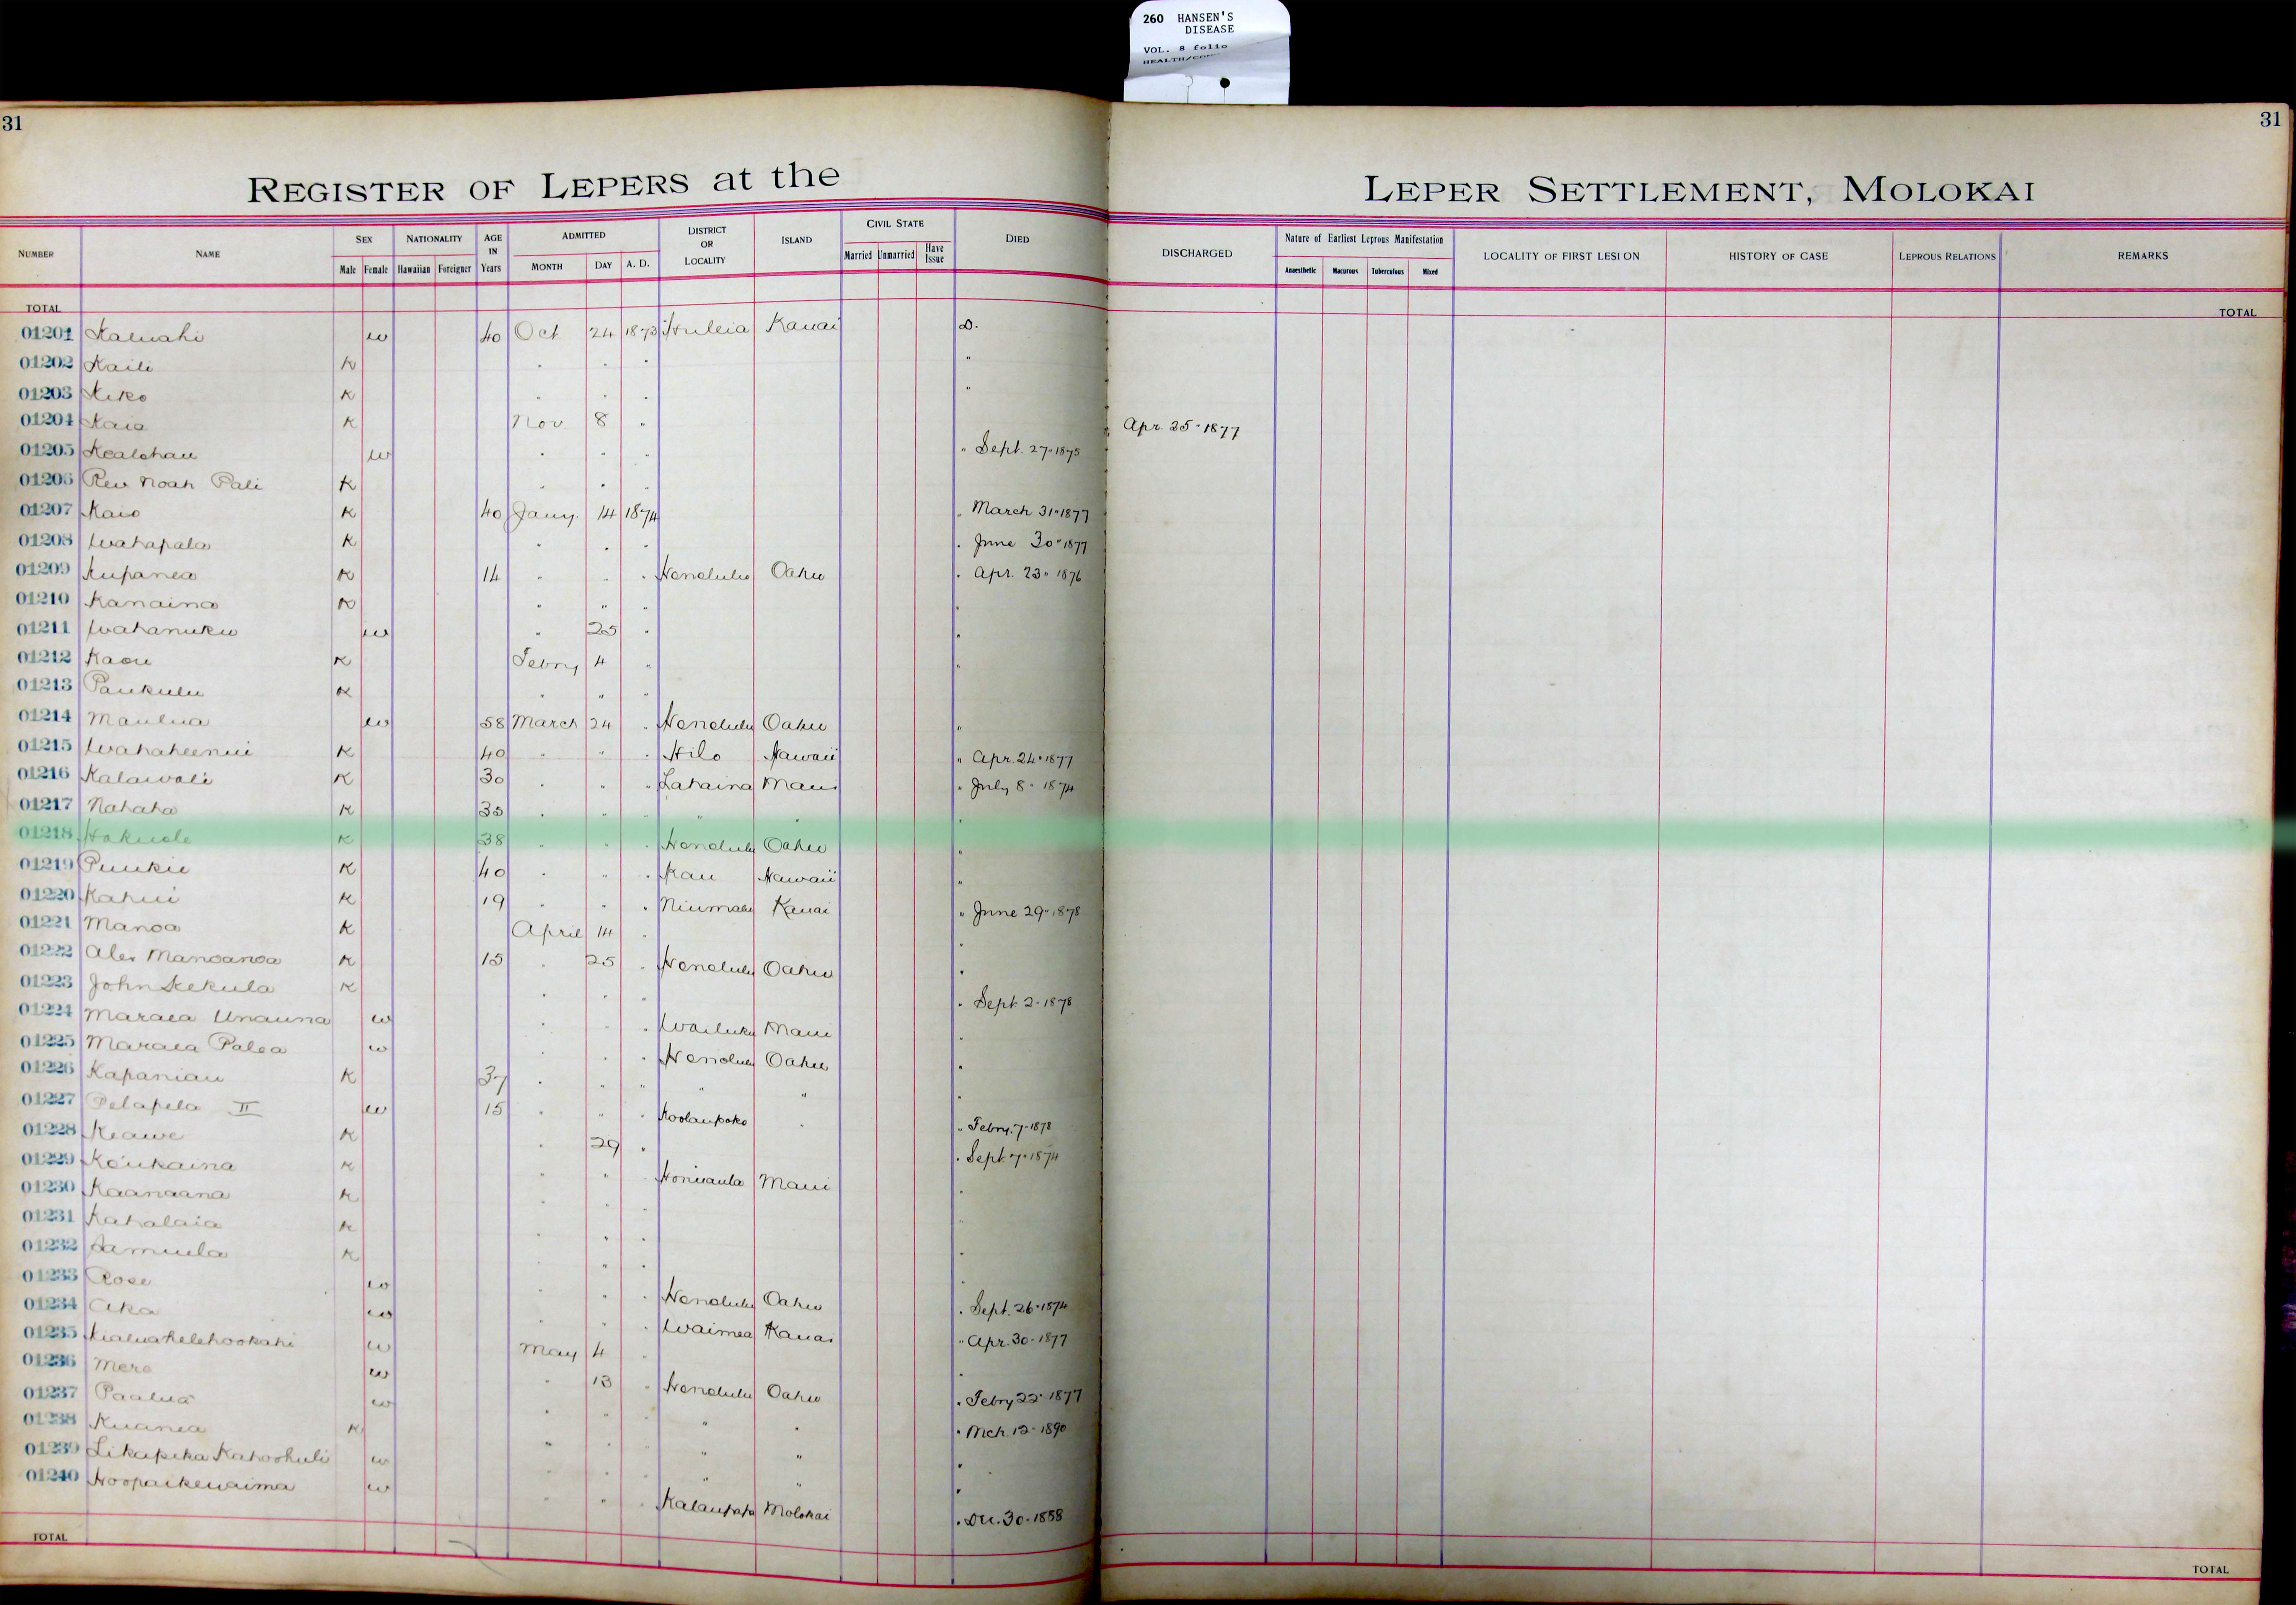 260 HANSEN'S
DISEASE
VOL. 8 folio
31 31
REGISTER OF LEPERS at the LEPER SETTLEMENT, MOLOKAI
NUMBER NAME SEX NATIONALITY AGE IN Years ADMITTED DISTRICT OR LOCALITY ISLAND CIVIL STATE DIED DISCHARGED Nature of Earliest Leprous Manifestation LOCALITY OF FIRST LESION HISTORY OF CASE LEPROUS RELATIONS REMARKS
Male Female Hawaiian Foreigner MONTH DAY A. D. Married Unmarried Have Issue Anaesthetic Macurous Tuberculous Mixed
TOTAL TOTAL
01201 Kaluahi w 40 Oct 24 1873 Huleia Kauai D.
01202 Kaili K " " " "
01203 Kiko K " " " "
01204 Kaia K Nov. 8 " " Apr. 25" 1877
01205 Kealohau w " " " " Sept. 27" 1875
01206 Rev Noah Pali K " " "
01207 Kaio K 40 Jany. 14 1874 " March 31" 1877
01208 Wahapala K " " " " June 30" 1877
01209 Kupanea K 14 " " " Honolulu Oahu " Apr. 23" 1876
01210 Kanaina K " " " "
01211 Wahanuku w " 25 " "
01212 Kaou K Febry 4 " "
01213 Paukulu K " " "
01214 Maulua w 58 March 24 " Honolulu Oahu "
01215 Wahaheenui K 40 " " " Hilo Hawaii " Apr. 24" 1877
01216 Kalawali K 30 " " " Lahaina Maui " July 8" 1874
01217 Nahaha K 35 " " " " " "
01218 Hakuole K 38 " " " Honolulu Oahu "
01219 Puukie K 40 " " " Kau Hawaii "
01220 Kahui K 19 " " " Niumalu Kauai " June 29" 1878
01221 Manoa K April 14 " "
01222 Alex Manoanoa K 15 " 25 " Honolulu Oahu "
01223 John Kekula K " " " " Sept. 2" 1878
01224 Maraea Unauna w " " " Wailuku Maui "
01225 Maraea Palea w " " " Honolulu Oahu "
01226 Kapaniau K 37 " " " " " "
01227 Pelapela II w 15 " " " Koolaupoko " " Febry. 7" 1878
01228 Keawe K " 29 " " Sept. 7" 1874
01229 Koukaina K " " " Honuaula Maui "
01230 Kaanaana K " " "
01231 Kahalaia K " " " "
01232 Samuela K " " " "
01233 Rose w " " " Honolulu Oahu " Sept. 26" 1874
01234 Aka w " " " Waimea Kauai " Apr. 30" 1877
01235 Kialuahelehookahi w May 4 " "
01236 Mere w " 13 " Honolulu Oahu " Febry 22" 1877
01237 Paalua w " " " " " " Mch. 12" 1890
01238 Kuanea K " " " " " "
01239 Likapeka Kahoohuli w " " " " " "
01240 Hoopaikewaima w " " " Kalaupapa Molokai " Dec. 30" 1888
TOTAL TOTAL